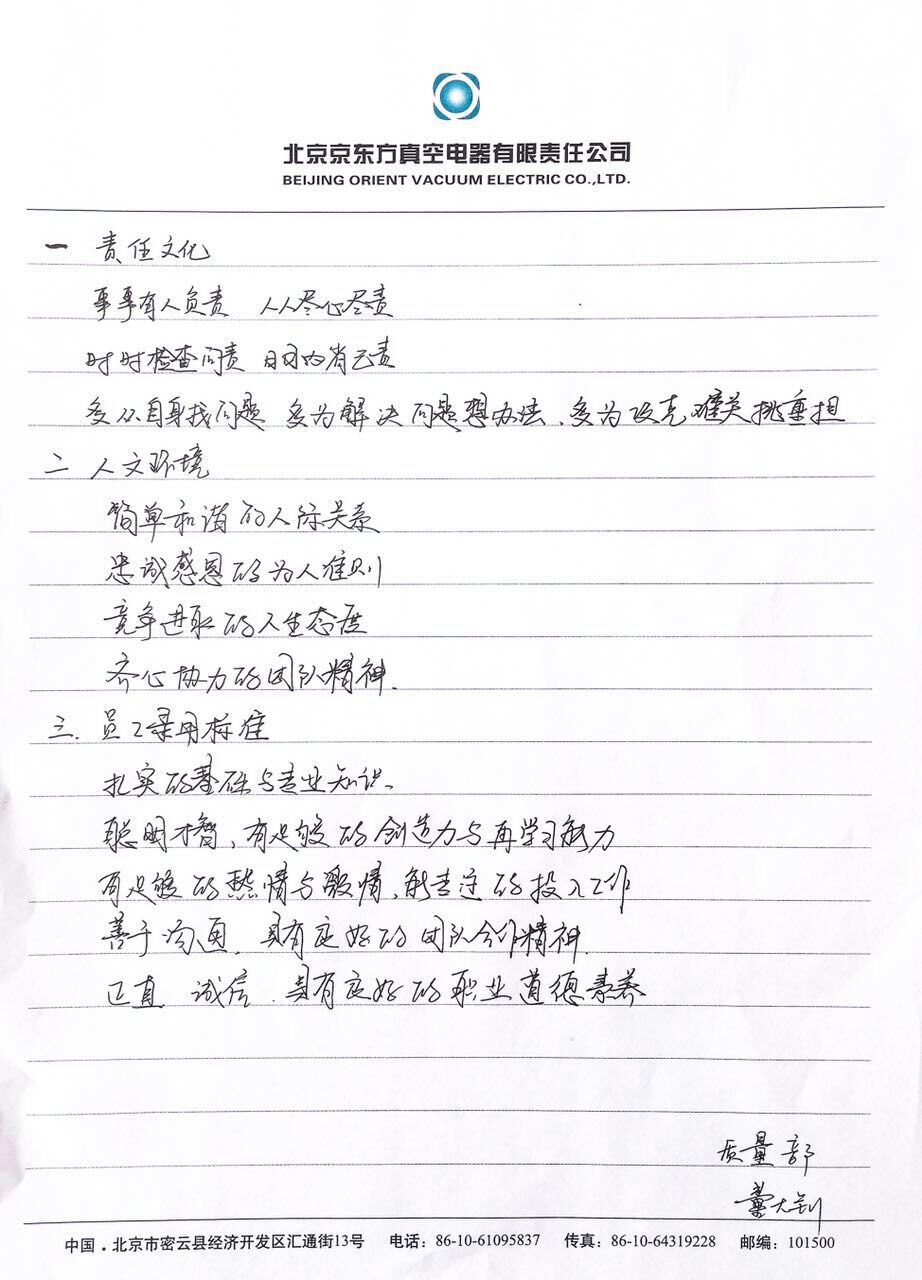 北京京东方真空电器有限责任公司
BEIJING ORIENT VACUUM ELECTRIC CO.,LTD.
一 责任文化
事事有人负责 人人尽心尽责
时时检查问责
多从自身找问题 多为解决问题想办法、多为攻克难关挑重担
二 人文环境
简单和谐的人际关系
忠诚感恩的为人准则
竞争进取的人生态度
齐心协力的团队精神.
三. 员工录用标准
扎实的基础与专业知识、
聪明才智、有足够的创造力与再学习能力
有足够的热情与激情、能专注的投入工作
善于沟通、具有良好的团队合作精神.
正直 诚信、具有良好的职业道德素养
质量部
董大钊
中国.北京市密云县经济开发区汇通街13号 电话：86-10-61095837 传真：86-10-64319228 邮编：101500